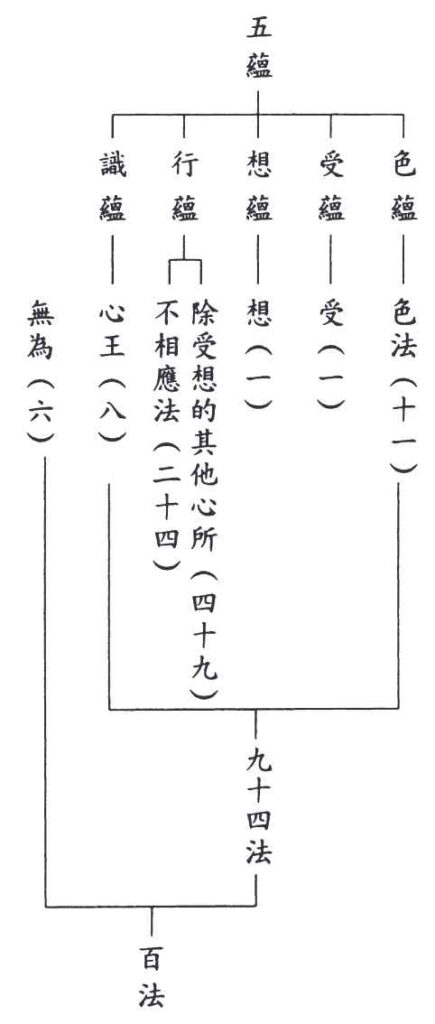 五蘊
色蘊
受蘊
想蘊
行蘊
識蘊
色法（十一）
受（一）
想（一）
除受想的其他心所（四十九）
不相應法（二十四）
心王（八）
無為（六）
九十四法
百法